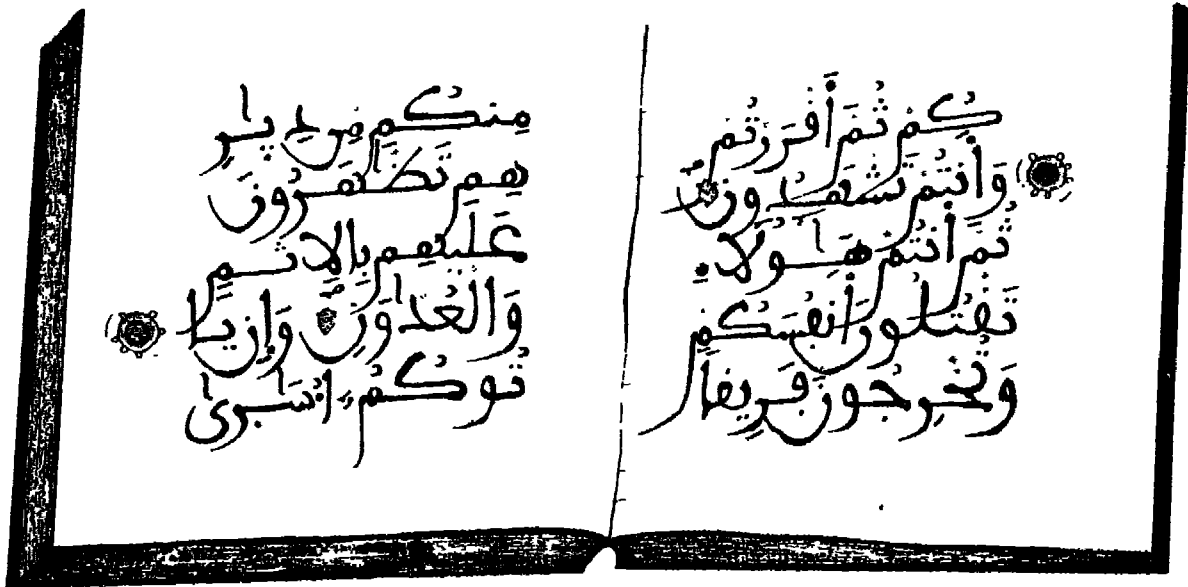 كُمْ ثُمَّ أَقْرَرْتُمْ
وَأَنتُمْ تَشْهَدُونَ
ثُمَّ أَنتُمْ هَٰٓؤُلَآءِ
تَقْتُلُونَ أَنفُسَكُمْ
وَتُخْرِجُونَ فَرِيقًا
مِنكُم مِّن دِيَٰرِ
هِمْ تَظَّٰهَرُونَ
عَلَيْهِم بِالِاثْمِ
وَالْعُدْوَٰنِ وَإِن يَا
تُوكُمُۥٓ أُسَٰرَىٰ